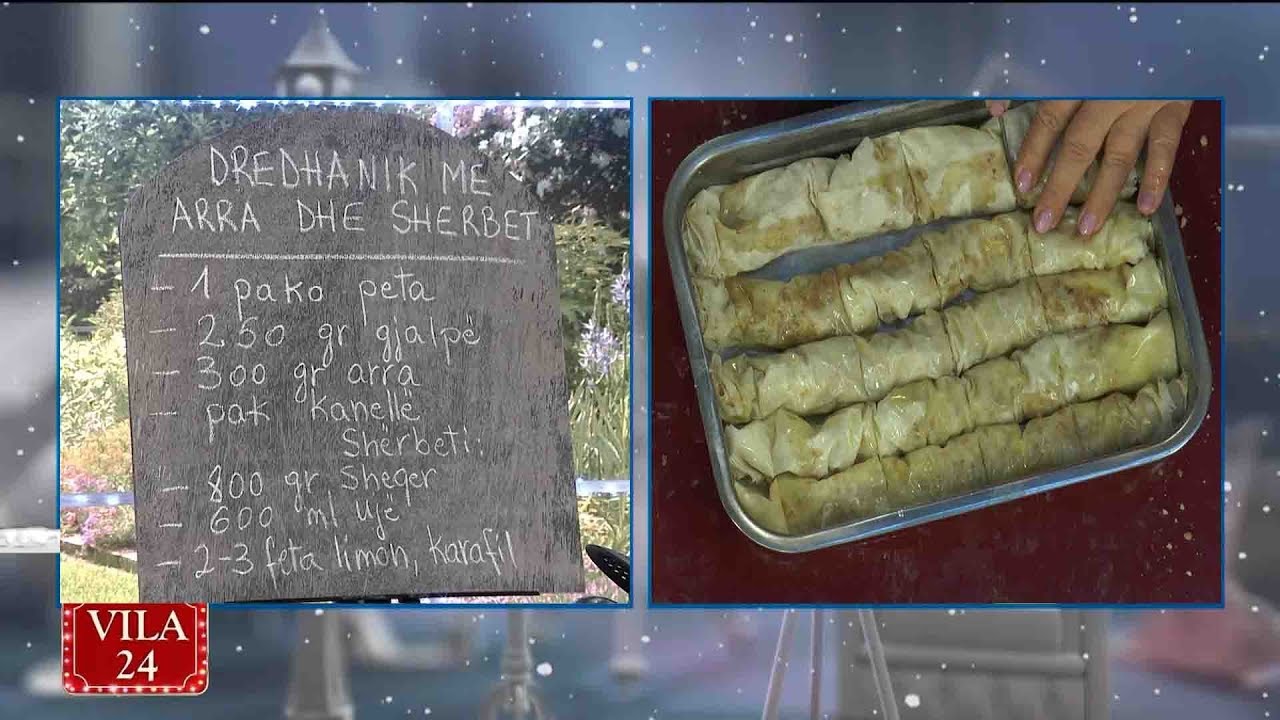 DREDHANIK ME
ARRA DHE SHERBET
- 1 pako peta
- 250 gr gjalpë
- 300 gr arra
- pak kanellë
Shërbeti:
- 800 gr Sheqer
- 600 ml Ujë
- 2-3 feta limon, karafil
VILA
24